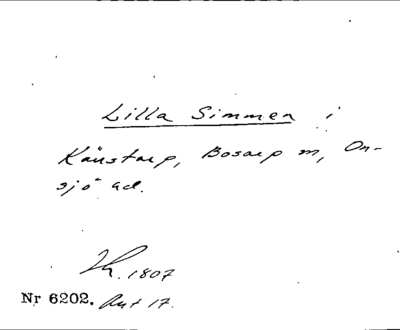 Lilla Simmen i
Känstarp, Bosarp m, On-
sjö hd.
Th. 1807
Nr 6202. Aut 17.